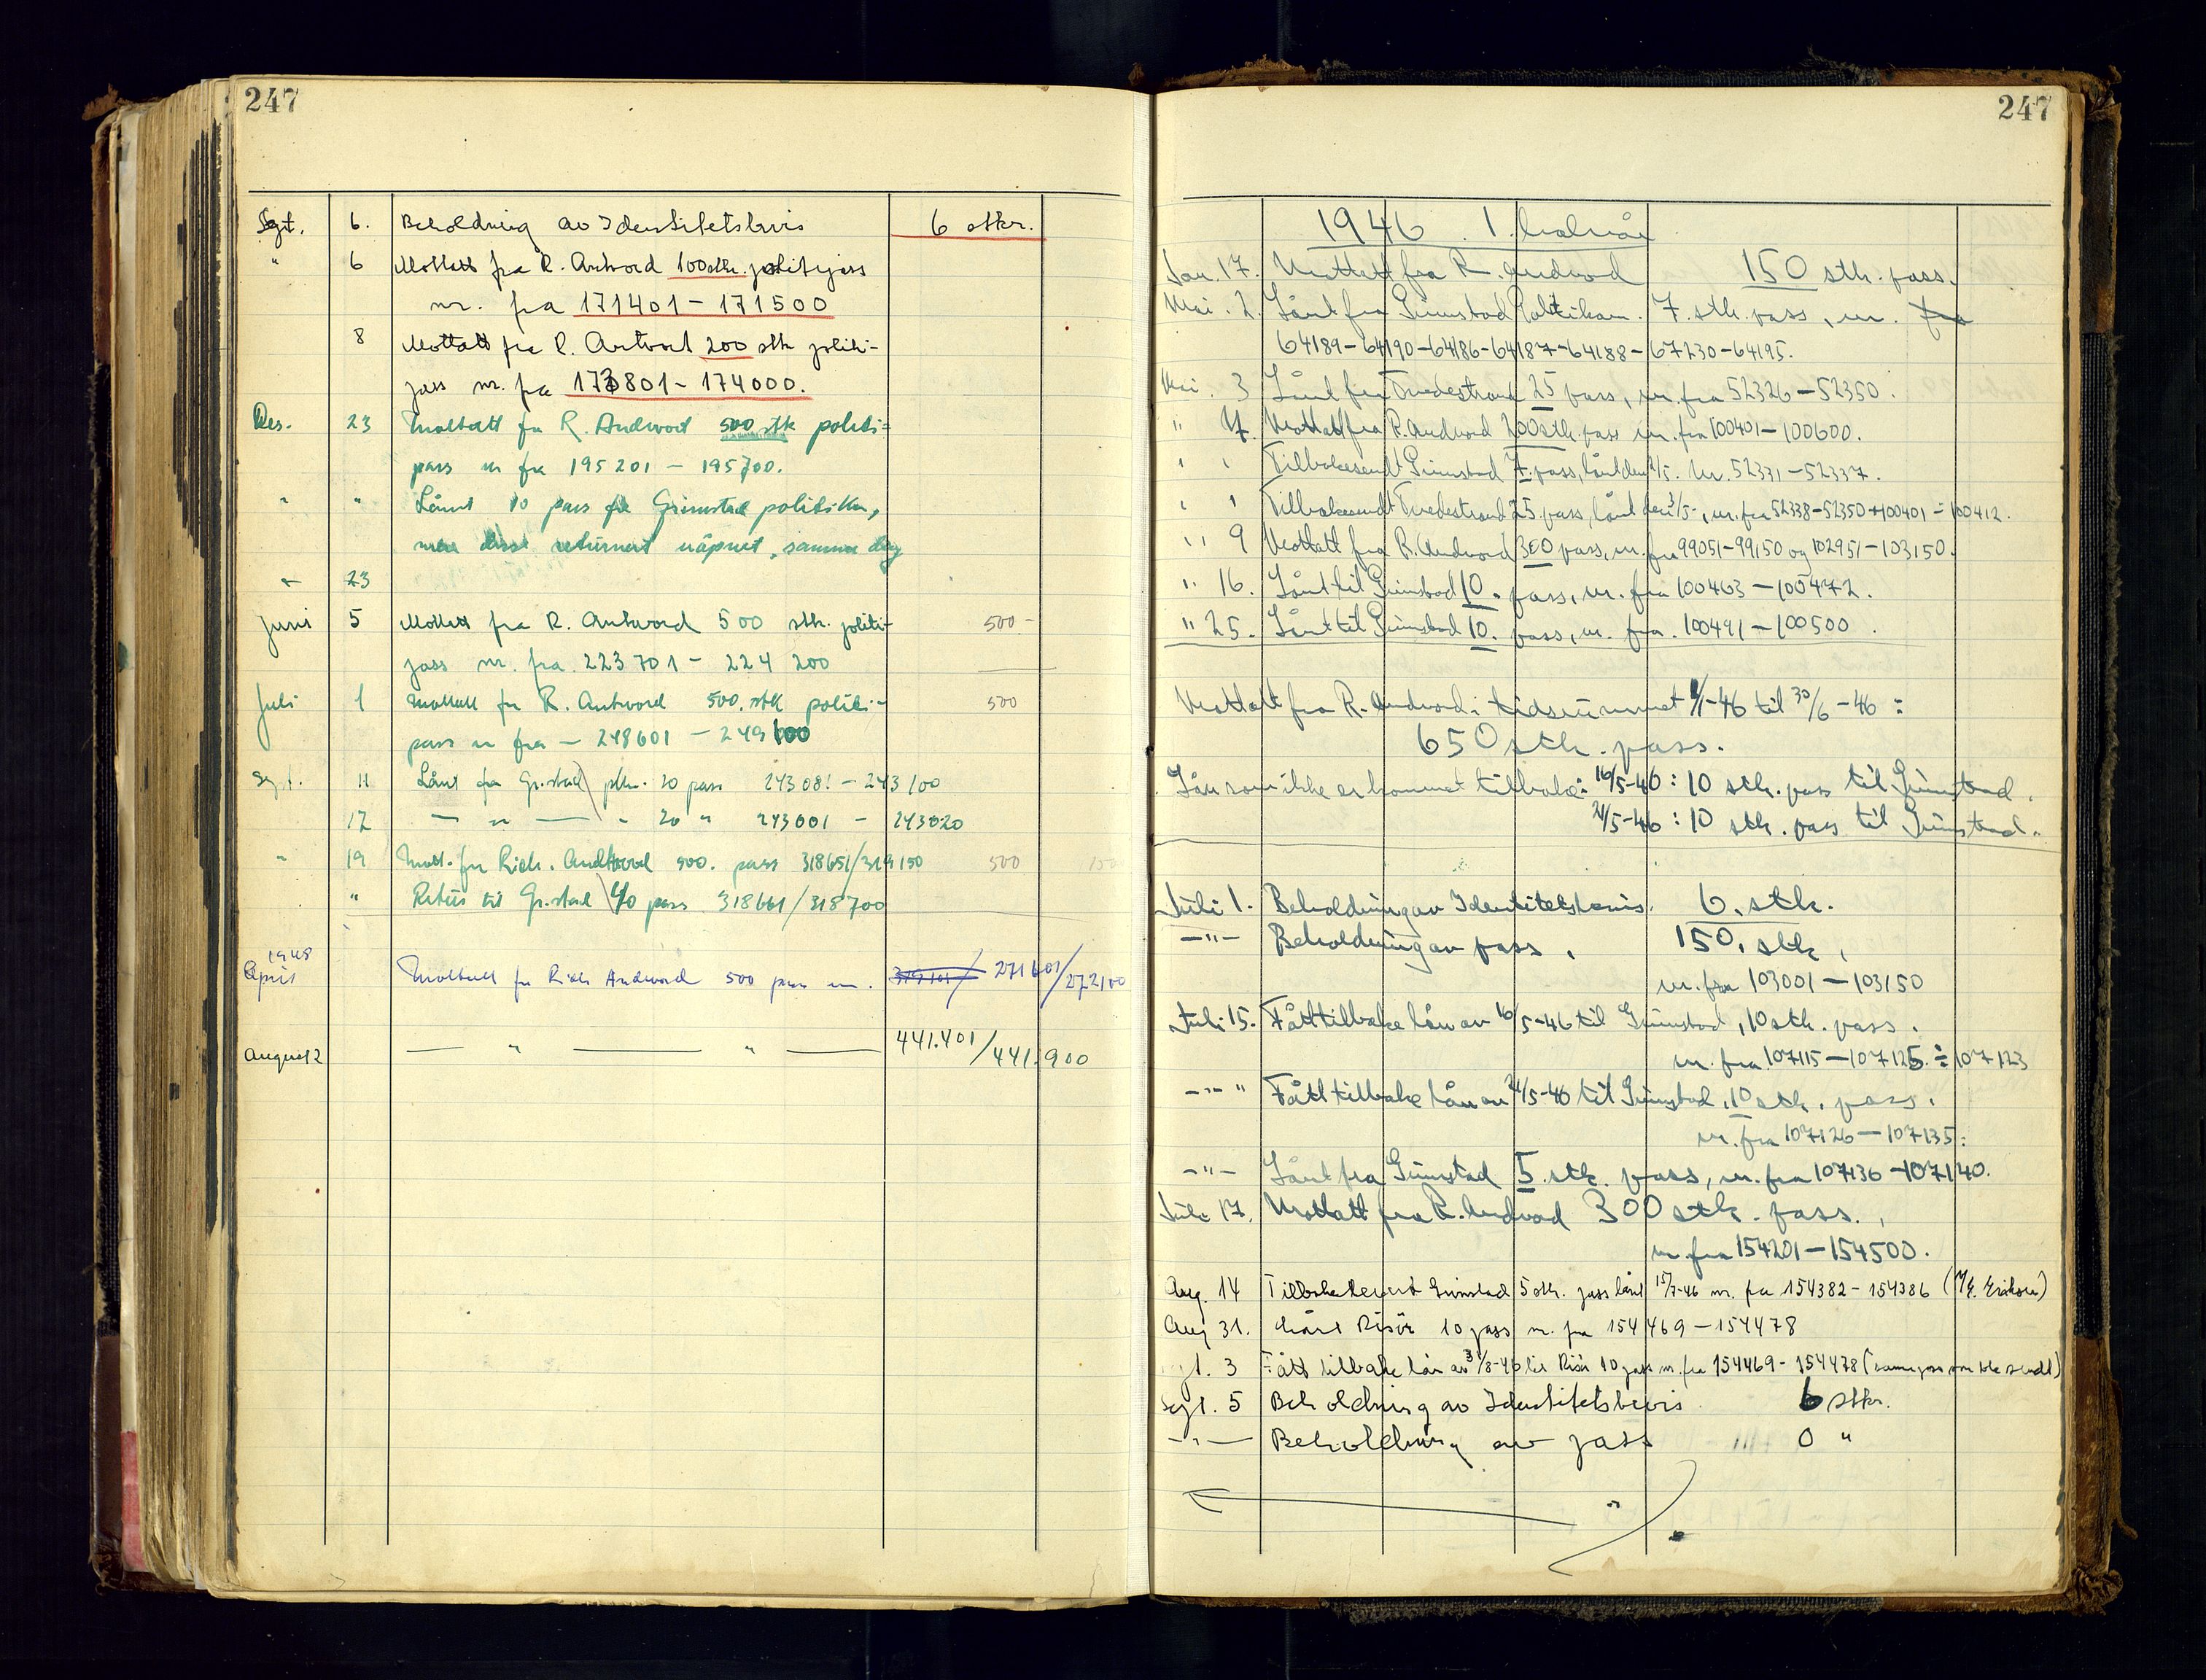 247
Sept. 6. Beholdning av Identitetsbevis 6 stkr.
" 6 Mottatt fra R. Antvord 100 stkr. politipass
nr. fra 171401 - 171500
8 Mottatt fra R. Antvort 200 stk politi-
pass nr. fra 173801 - 174000.
Des. 23 Mottatt fra R. Andvort 500 stk politi=
pass nr fra 195201 - 195700.
" " Lånt 10 pass fra Grimstad politikm,
men disse returnert uåpnet, samme dag
" 23
Juni 5 Mottatt fra R. Antvord 500 stk. politi- 500-
pass nr. fra 223701 - 224200
Juli 1 Mottatt fra R. Antvord 500. stk politi- 500
pass nr fra - 248601 - 249100
Sept. 11 Lånt fra Gr.stad plkm. 20 pass 243081 - 243100
17 — " — " 20 " 243001 - 243020
" 19 Mott. fra Rich. Andvord 500. pass 318651/319150 500
" Retur til Gr.stad 40 pass 318661/318700
1948
April Mottatt fra Rich Andvord 500 pass nr. 271601/272100
August 2 — " — " — 441.401/441.900
247
1946 1. halvår
Jan. 17. Mottatt fra R. Andvod 150 stk. pass.
Mai. 2. Lånt fra Grimstad Politikam. 7. stk. pass, nr. fra
64189-64190-64186-64187-64188-67230-64195.
Mai. 3 Lånt fra Tvedestrand 25 pass, nr. fra 52326-52350.
" 7. Mottatt fra R. Andvord 200 stk. pass nr. fra 100401-100600.
" " Tilbakesendt Grimstad 7. pass, lånt den 2/5. Nr. 52331-52337.
" " Tilbakesendt Tvedestrand 25 pass, lånt den 3/5-, nr. fra 52338-52350 + 100401-100412.
" 9 Mottatt fra R. Andvord 300 pass, nr. fra 99051-99150 og 102951-103150.
" 16. Lånt til Grimstad 10. pass, nr. fra 100463-100472.
" 25. Lånt til Grimstad 10. pass, nr. fra. 100491-100500.
Mottatt fra R. Andvord i tidsrummet 1/1-46 til 30/6-46 :
650 stk. pass.
Lån som ikke er kommet tilbake: 16/5-46 : 10 stk. pass til Grimstad.
/5-46 : 10 stk. pass til Grimstad.
Juli 1. Beholdning av Identitetsbevis. 6. stk.
—"— Beholdning av pass. 150. stk.
nr. fra 103001-103150
Juli 15. Fått tilbake lån av 16/5-46 til Grimstad, 10 stk. pass.
nr. fra 107115-107125. ÷ 107123
—"— Fått tilbake lån av /5-46 til Grimstad, 10 stk. pass.
nr. fra 107126-107135.
—"— Lånt fra Grimstad 5. stk. pass, nr. fra 107136-107140.
Juli 17. Mottatt fra R. Andvod 300 stk. pass.
nr. fra 154201-154500.
Aug. 14 Tilbakelevert Grimstad 5 stk. pass lånt 15/7-46 nr. fra 154382-154386
Aug 31. Lånt Risør 10 pass nr. fra 154469-154478
Sept. 3 Fått tilbake lån av 31/8-46 til Risør 10 pass nr. fra 154469-154478 (samme pass som ble sendt)
Sept. 5 Beholdning av Identitetsbevis 6 stkr.
—"— Beholdning av pass 0 "